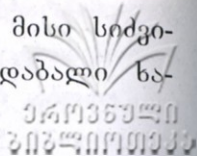 მისი სიძვი-
დაბალი ხა-
ეროვნული
ბიბლიოთეკა